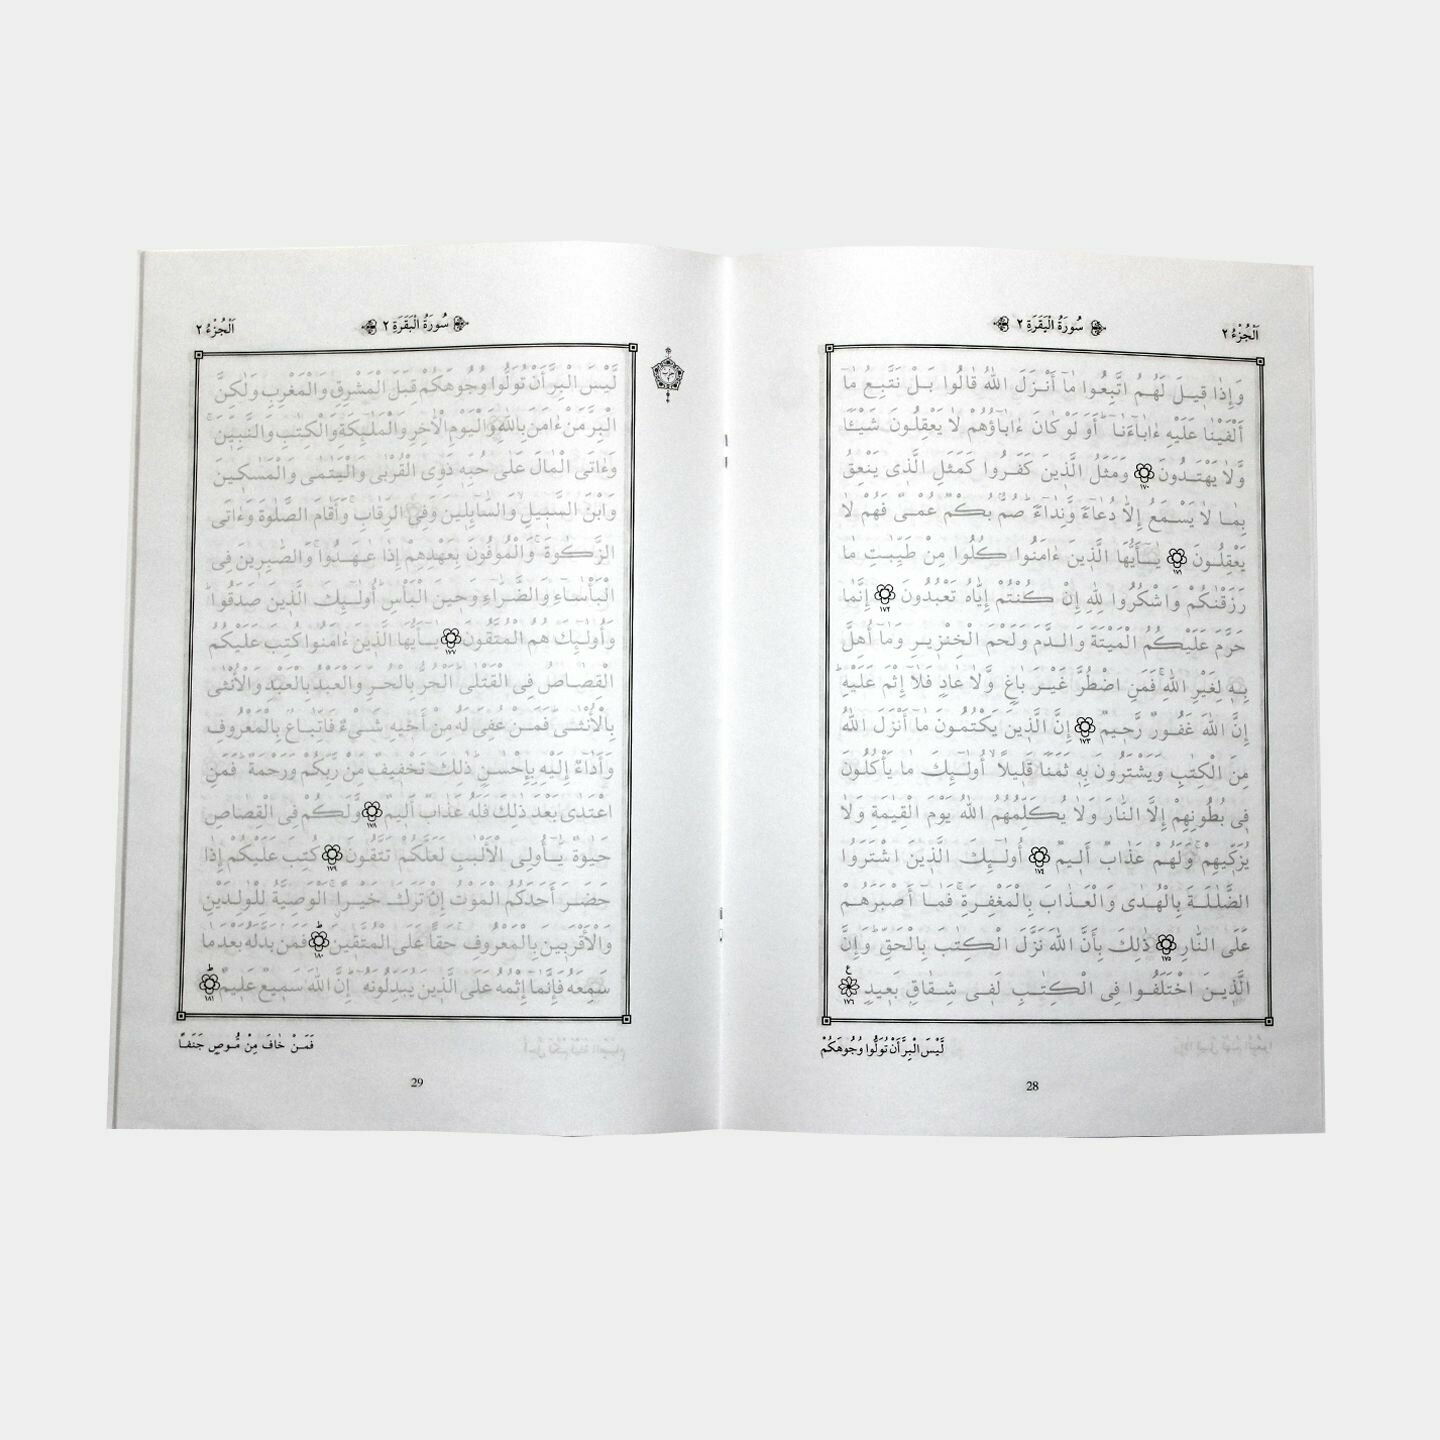 اَلْجُزْءُ ٢
سُورَةُ الْبَقَرَةِ ٢
وَإِذٰا قِيلَ لَهُمُ اتَّبِعُوا مٰآ أَنْزَلَ اللّٰهُ قٰالُوا بَلْ نَتَّبِعُ مٰآ
أَلْفَيْنٰا عَلَيْهِ ءٰابٰآءَنٰآ ۗ أَوَلَوْ كٰانَ ءٰابٰآؤُهُمْ لٰا يَعْقِلُونَ شَيْـًٔا
وَّلٰا يَهْتَدُونَ ١٧٠ وَمَثَلُ الَّذِينَ كَفَرُوا كَمَثَلِ الَّذِى يَنْعِقُ
بِمٰا لٰا يَسْمَعُ إِلّٰا دُعٰآءً وَّنِدٰآءً ۚ صُمٌّۢ بُكْمٌ عُمْىٌ فَهُمْ لٰا
يَعْقِلُونَ ١٧١ يٰٓأَيُّهَا الَّذِينَ ءٰامَنُوا كُلُوا مِنْ طَيِّبٰتِ مٰا
رَزَقْنٰكُمْ وَاشْكُرُوا لِلّٰهِ إِنْ كُنْتُمْ إِيّٰاهُ تَعْبُدُونَ ١٧٢ إِنَّمٰا
حَرَّمَ عَلَيْكُمُ الْمَيْتَةَ وَالدَّمَ وَلَحْمَ الْخِنْزِيرِ وَمٰآ أُهِلَّ
بِهِ لِغَيْرِ اللّٰهِ ۚ فَمَنِ اضْطُرَّ غَيْرَ بٰاغٍ وَّلٰا عٰادٍ فَلٰآ إِثْمَ عَلَيْهِ ۗ
إِنَّ اللّٰهَ غَفُورٌ رَّحِيمٌ ١٧٣ إِنَّ الَّذِينَ يَكْتُمُونَ مٰآ أَنْزَلَ اللّٰهُ
مِنَ الْكِتٰبِ وَيَشْتَرُونَ بِهِ ثَمَنًا قَلِيلًا ۙ أُولٰٓئِكَ مٰا يَأْكُلُونَ
فِى بُطُونِهِمْ إِلَّا النّٰارَ وَلٰا يُكَلِّمُهُمُ اللّٰهُ يَوْمَ الْقِيٰمَةِ وَلٰا
يُزَكِّيهِمْ ۚ وَلَهُمْ عَذٰابٌ أَلِيمٌ ١٧٤ أُولٰٓئِكَ الَّذِينَ اشْتَرَوُا
الضَّلٰلَةَ بِالْهُدٰى وَالْعَذٰابَ بِالْمَغْفِرَةِ ۚ فَمٰآ أَصْبَرَهُمْ
عَلَى النّٰارِ ١٧٥ ذٰلِكَ بِأَنَّ اللّٰهَ نَزَّلَ الْكِتٰبَ بِالْحَقِّ ۗ وَإِنَّ
الَّذِينَ اخْتَلَفُوا فِى الْكِتٰبِ لَفِى شِقٰاقٍ بَعِيدٍ ع ١٧٦
لَّيْسَ الْبِرَّ أَنْ تُوَلُّوا وُجُوهَكُمْ
28
سُورَةُ الْبَقَرَةِ ٢
اَلْجُزْءُ ٢
لَّيْسَ الْبِرَّ أَنْ تُوَلُّوا وُجُوهَكُمْ قِبَلَ الْمَشْرِقِ وَالْمَغْرِبِ وَلٰكِنَّ
الْبِرَّ مَنْ ءٰامَنَ بِاللّٰهِ وَالْيَوْمِ الْاٰخِرِ وَالْمَلٰٓئِكَةِ وَالْكِتٰبِ وَالنَّبِيّٖنَ ۚ
وَءٰاتَى الْمٰالَ عَلٰى حُبِّهِ ذَوِى الْقُرْبٰى وَالْيَتٰمٰى وَالْمَسٰكِينَ
وَابْنَ السَّبِيلِ ۙ وَالسّٰآئِلِينَ وَفِى الرِّقٰابِ ۚ وَأَقٰامَ الصَّلٰوةَ وَءٰاتَى
الزَّكٰوةَ ۚ وَالْمُوفُونَ بِعَهْدِهِمْ إِذٰا عٰهَدُوا ۚ وَالصّٰبِرِينَ فِى
الْبَأْسٰآءِ وَالضَّرّٰآءِ وَحِينَ الْبَأْسِ ۗ أُولٰٓئِكَ الَّذِينَ صَدَقُوا ۗ
وَأُولٰٓئِكَ هُمُ الْمُتَّقُونَ ١٧٧ يٰٓأَيُّهَا الَّذِينَ ءٰامَنُوا كُتِبَ عَلَيْكُمُ
الْقِصٰاصُ فِى الْقَتْلٰى ۗ الْحُرُّ بِالْحُرِّ وَالْعَبْدُ بِالْعَبْدِ وَالْأُنْثٰى
بِالْأُنْثٰى ۗ فَمَنْ عُفِىَ لَهُ مِنْ أَخِيهِ شَىْءٌ فَاتِّبٰاعٌۢ بِالْمَعْرُوفِ
وَأَدٰآءٌ إِلَيْهِ بِإِحْسٰنٍ ۗ ذٰلِكَ تَخْفِيفٌ مِّنْ رَّبِّكُمْ وَرَحْمَةٌ ۗ فَمَنِ
اعْتَدٰى بَعْدَ ذٰلِكَ فَلَهُ عَذٰابٌ أَلِيمٌ ١٧٨ وَلَكُمْ فِى الْقِصٰاصِ
حَيٰوةٌ يّٰٓأُولِى الْأَلْبٰبِ لَعَلَّكُمْ تَتَّقُونَ ١٧٩ كُتِبَ عَلَيْكُمْ إِذٰا
حَضَرَ أَحَدَكُمُ الْمَوْتُ إِنْ تَرَكَ خَيْرًا ۨ الْوَصِيَّةُ لِلْوٰلِدَيْنِ
وَالْأَقْرَبِينَ بِالْمَعْرُوفِ ۚ حَقًّا عَلَى الْمُتَّقِينَ ط ١٨٠ فَمَنْ بَدَّلَهُ بَعْدَ مٰا
سَمِعَهُ فَإِنَّمٰآ إِثْمُهُ عَلَى الَّذِينَ يُبَدِّلُونَهُ ۗ إِنَّ اللّٰهَ سَمِيعٌ عَلِيمٌ ط ١٨١
فَمَنْ خٰافَ مِنْ مُّوصٍ جَنَفًا
29